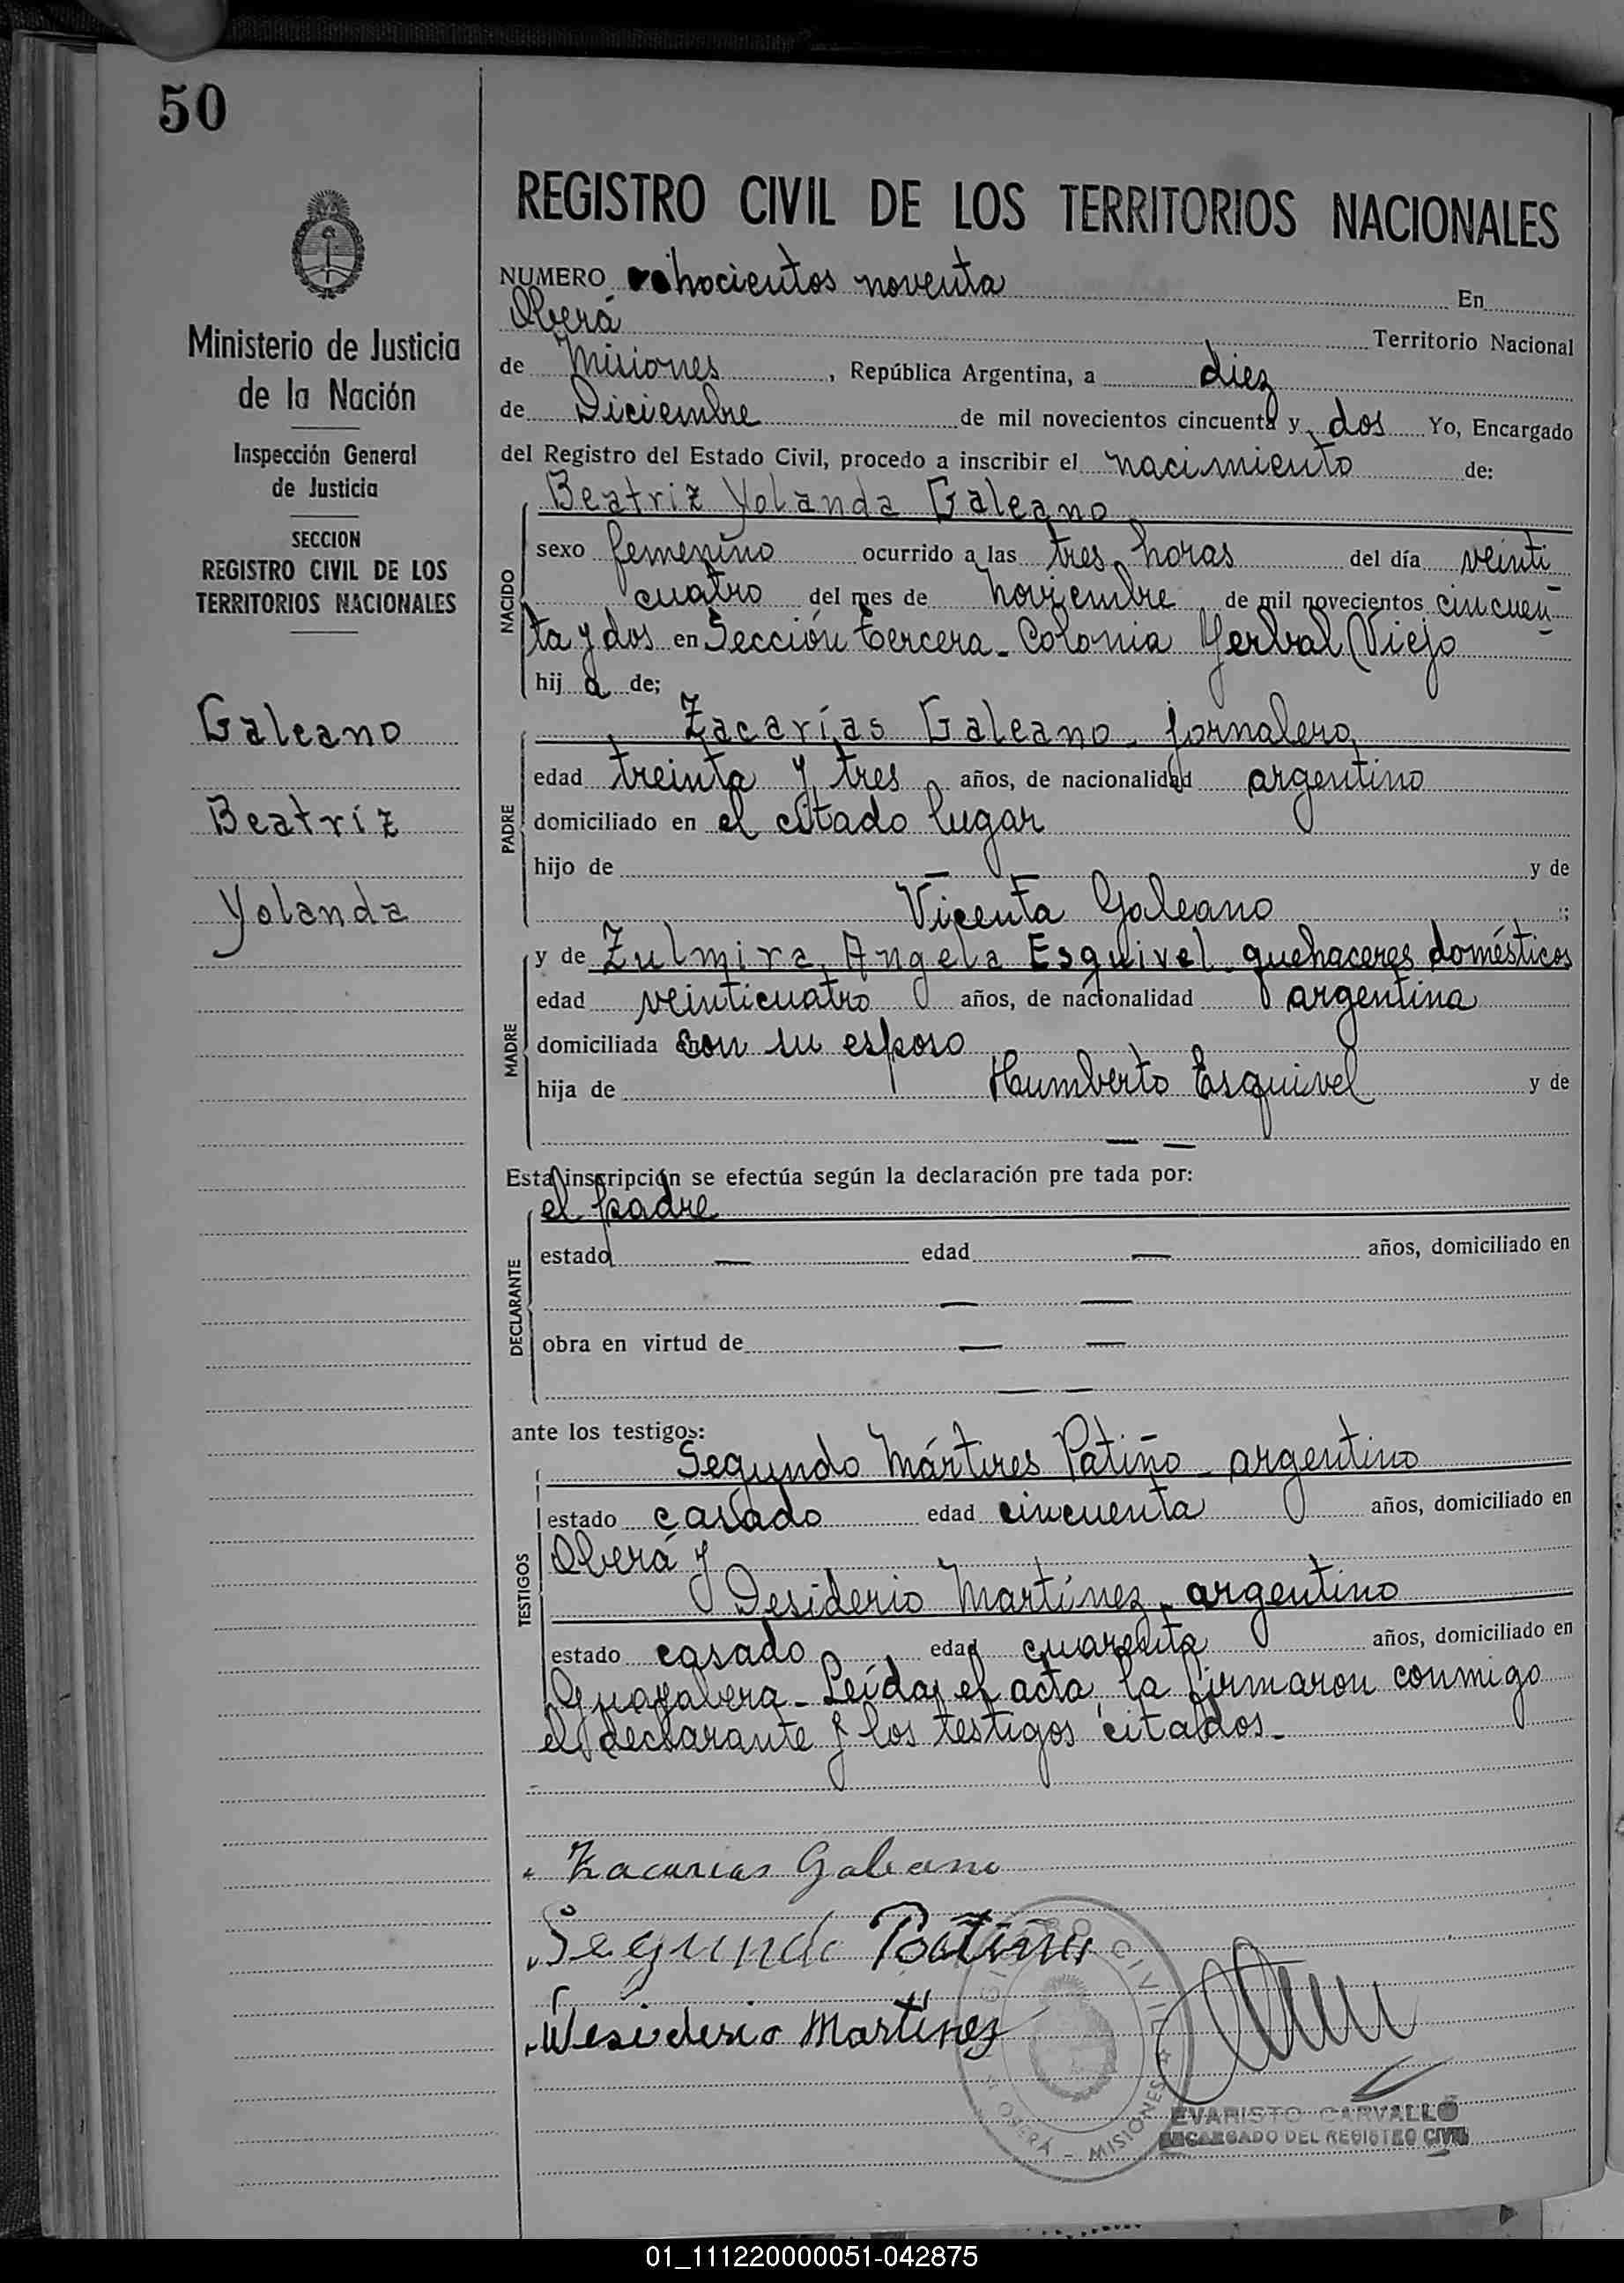 50
REGISTRO CIVIL DE LOS TERRITORIOS NACIONALES
Ministerio de Justicia
de la Nación
Inspección General
de Justicia
SECCION
REGISTRO CIVIL DE LOS
TERRITORIOS NACIONALES
Galeano
Beatríz
Yolanda
NUMERO ochocientos noventa En
Oberá Territorio Nacional
de Misiones, República Argentina, a diez
de Diciembre de mil novecientos cincuenta y dos Yo, Encargado
del Registro del Estado Civil, procedo a inscribir el nacimiento de:
NACIDO
Beatriz Yolanda Galeano
sexo femenino ocurrido a las tres horas del día veinti
cuatro del mes de noviembre de mil novecientos cincuen
ta y dos en Sección tercera - Colonia Yerbal Viejo
hij a de;
PADRE
Zacarías Galeano - jornalero
edad treinta y tres años, de nacionalidad argentino
domiciliado en el citado lugar
hijo de — y de
Vicenta Galeano ;
MADRE
y de Zulmira Angela Esquivel - quehaceres domésticos
edad veinticuatro años, de nacionalidad argentina
domiciliada con su esposo
hija de Humberto Esquivel y de
— —
Esta inscripción se efectúa según la declaración pre tada por:
DECLARANTE
el padre
estado — edad — años, domiciliado en
— —
obra en virtud de — —
— —
ante los testigos:
TESTIGOS
Segundo Mártires Patiño - argentino
estado casado edad cincuenta años, domiciliado en
Oberá y
Desiderio Martínez - argentino
estado casado edad cuarenta años, domiciliado en
Guayabera - Leída el acta la firmaron conmigo
el declarante y los testigos citados -
Zacarias Galeano
Segundo Patiño
Desiderio Martínez
REGISTRO CIVIL
OBERÁ - MISIONES
EVARISTO CARVALLO
ENCARGADO DEL REGISTRO CIVIL
01_111220000051-042875